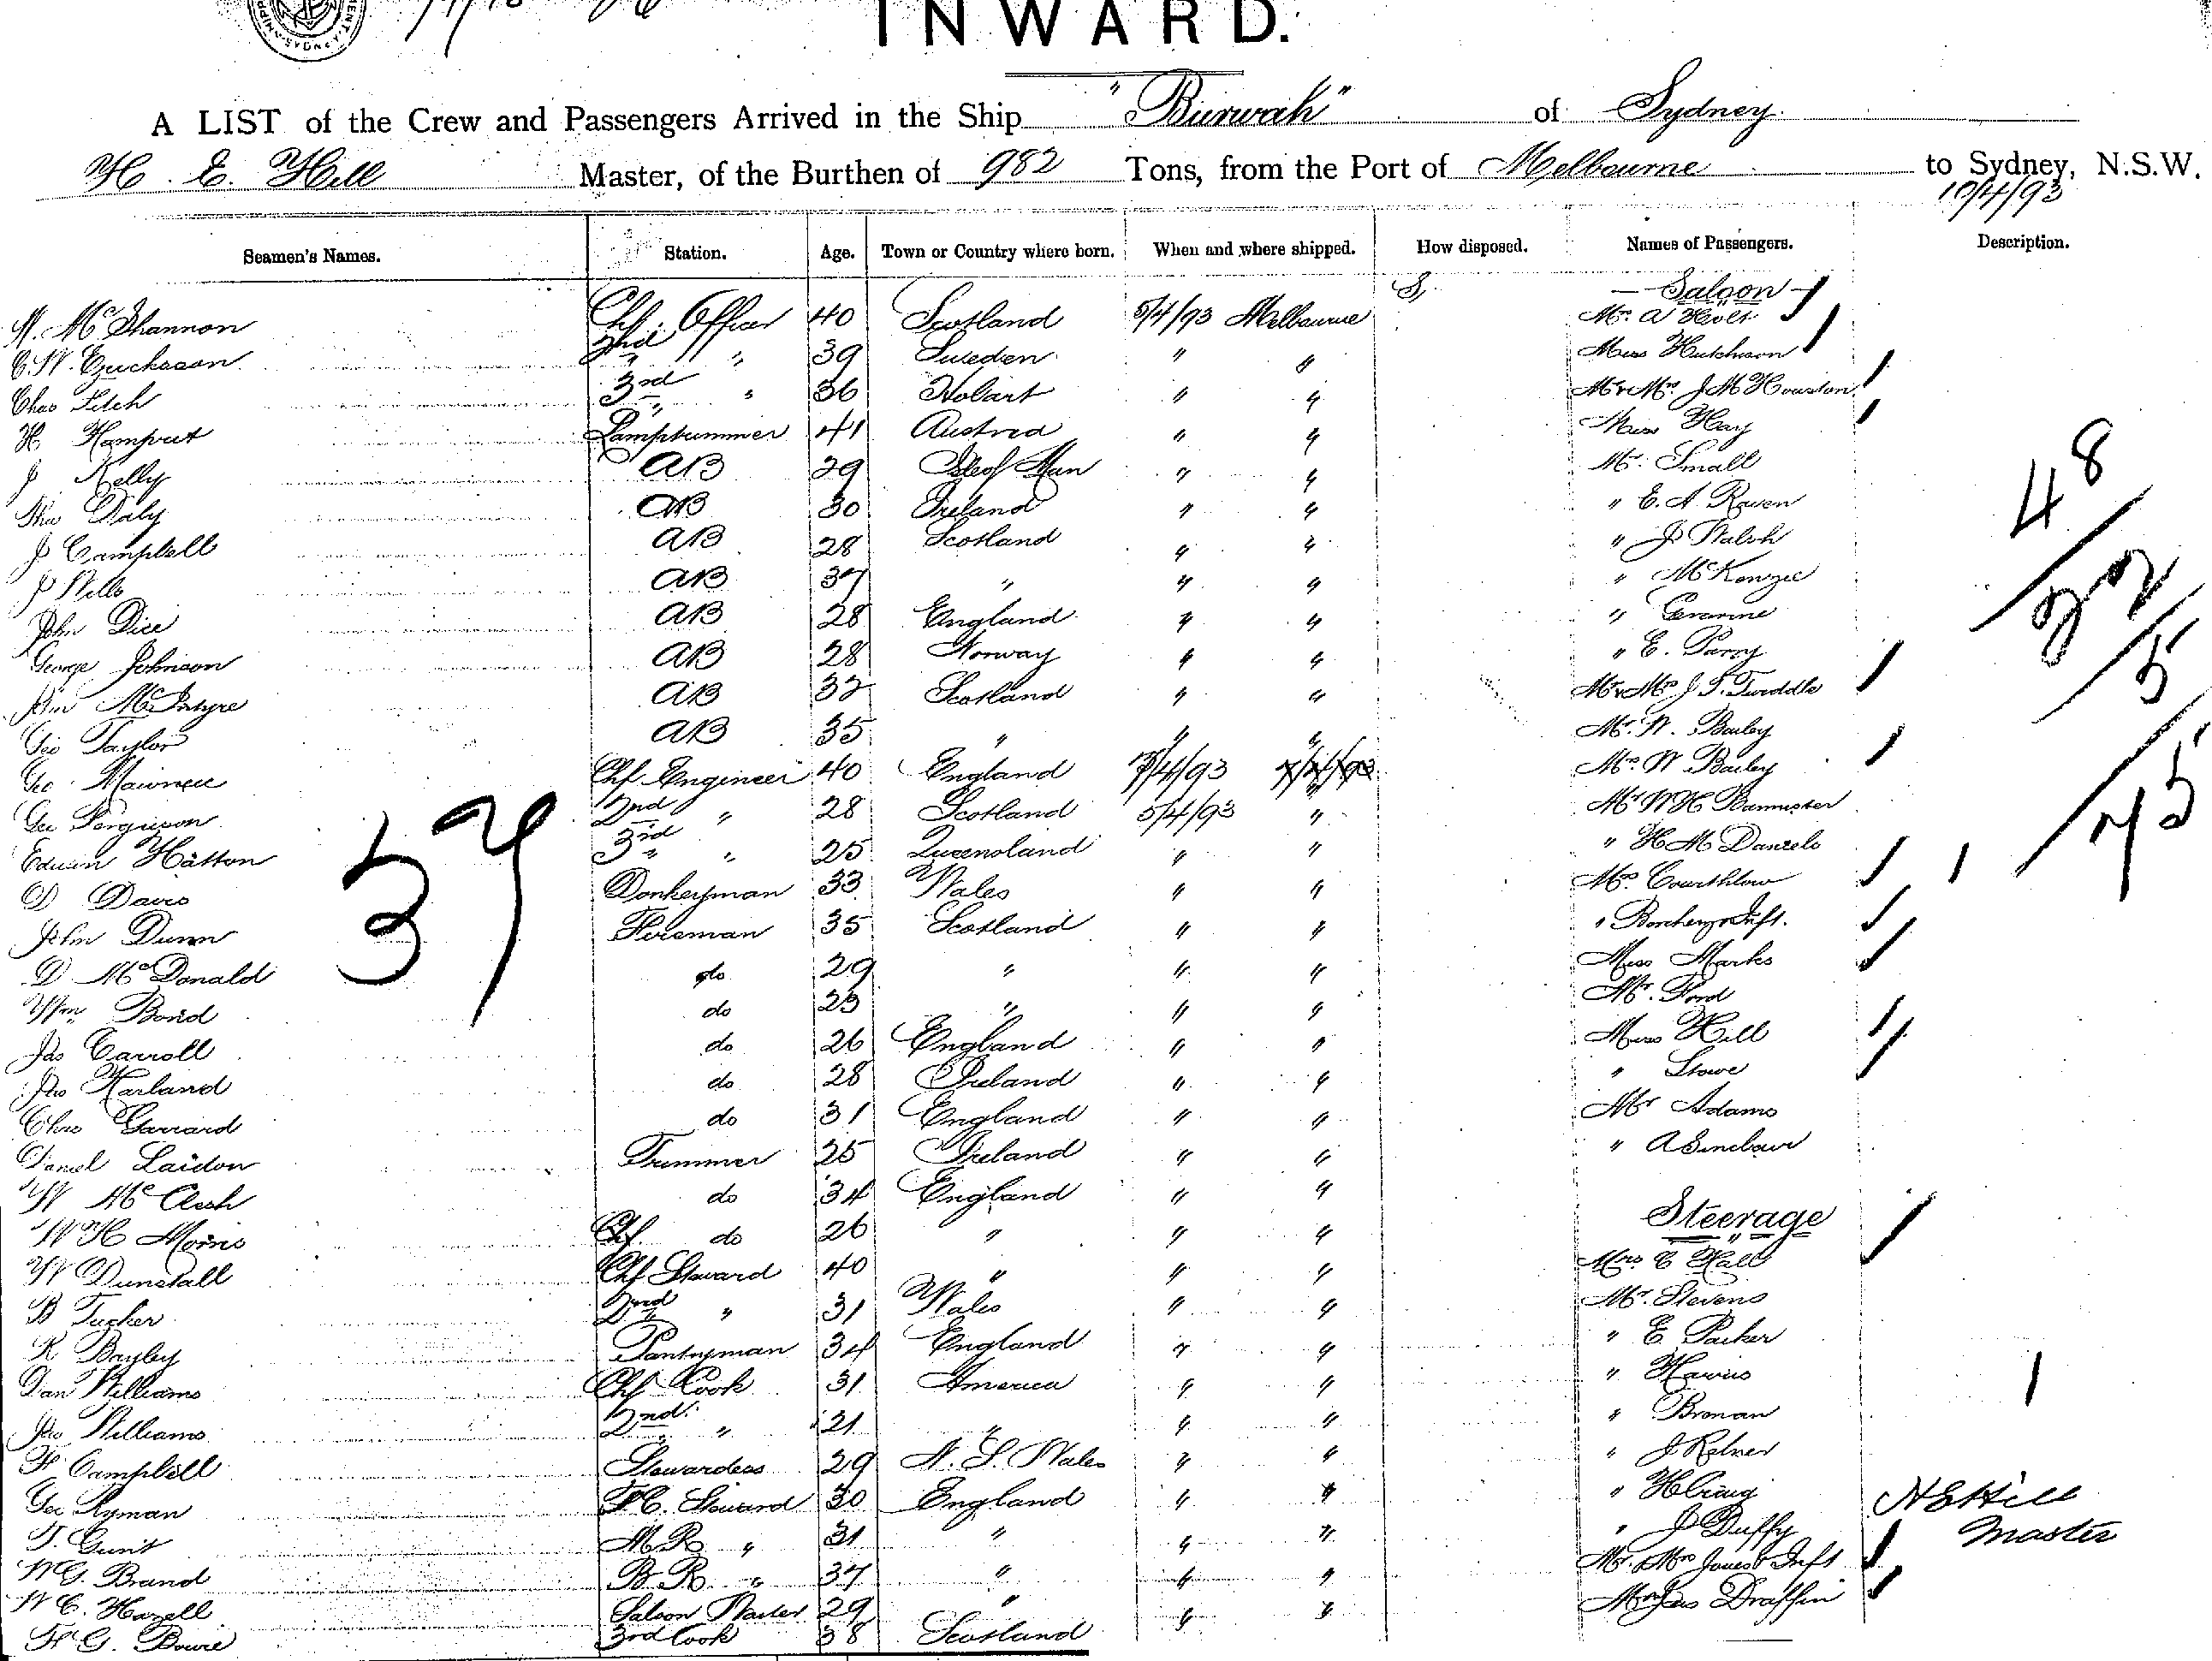 INWARD.
A LIST of the Crew and Passengers Arrived in the Ship "Burwah" of Sydney
H. E. Hill Master, of the Burthen of 982 Tons, from the Port of Melbourne to Sydney, N.S.W.
10/4/93
Seamen's Names. Station. Age. Town or Country where born. When and where shipped. How disposed. Names of Passengers. Description.
Saloon
McShannon Chf. Officer 40 Scotland 5/4/93 Melbourne Mr. A Holt
C.W. 2nd " 39 Sweden " " Miss Hutchison
Chas Fitch 3rd " 36 Hobart " " Mr & Mrs J M Houston
H. Lamptrimmer 41 Austria " " Miss Hay
J Kelly AB 29 Isle of Man " " Mr. Small
Thos Daly AB 30 Ireland " " " E. A. Raven
J Campbell AB 28 Scotland " " " J Walsh
J Wills AB 37 " " " " McKenzie
John Dice AB 28 England " " "
George Johnson AB 28 Norway " " " E. Parry
John McIntyre AB 32 Scotland " " Mr & Mrs J. T. Tweddle
Geo Taylor AB 35 " " " Mr. W. Bailey
Geo. Chf Engineer 40 England 7/4/93 7/4/93 Mrs W Bailey
Geo Ferguson 2nd " 28 Scotland 5/4/93 " Mr W H Bannister
Edwin Hatton 3rd " 25 Queensland " " " H M Daniels
D Davis Donkeyman 33 Wales " " Mrs Courthlow
John Dunn Fireman 35 Scotland " " " Inft.
D McDonald do 29 " " " Miss Marks
Wm Bond do 25 " " " Mr. Ford
Jas Carroll do 26 England " " Miss Hill
Jno Harland do 28 Ireland " " " Stowe
Chas Garrard do 31 England " " Mr Adams
Daniel Laidon Trimmer 25 Ireland " " " A Sinclair
W McClesh do 34 England " "
Steerage
W H Morris Chf do 26 " " "
W Dunstall Chf Steward 40 " " " Mrs C Hall
B Tucker 2nd " 31 Wales " " Mr. Stevens
R Bayley Pantryman 34 England " " " E Parker
Dan Williams Chf Cook 31 America " " " Harris
Jno Williams 2nd " 21 " " " " Bronan
F Campbell Stewardess 29 N. S. Wales " " " J Relner
Geo Ryman F.C. Steward 30 England " " " H Craig
T. Gunt M.R. " 31 " " " " J Duffy
W G. Brand B.R. " 37 " " " Mr. & Mrs Jones & Inft
W C. Hazell Saloon Waiter 29 " " " Draffin
F G. Bowie 3rd Cook 38 Scotland "
37
48
22
5
75
H E Hill
Master